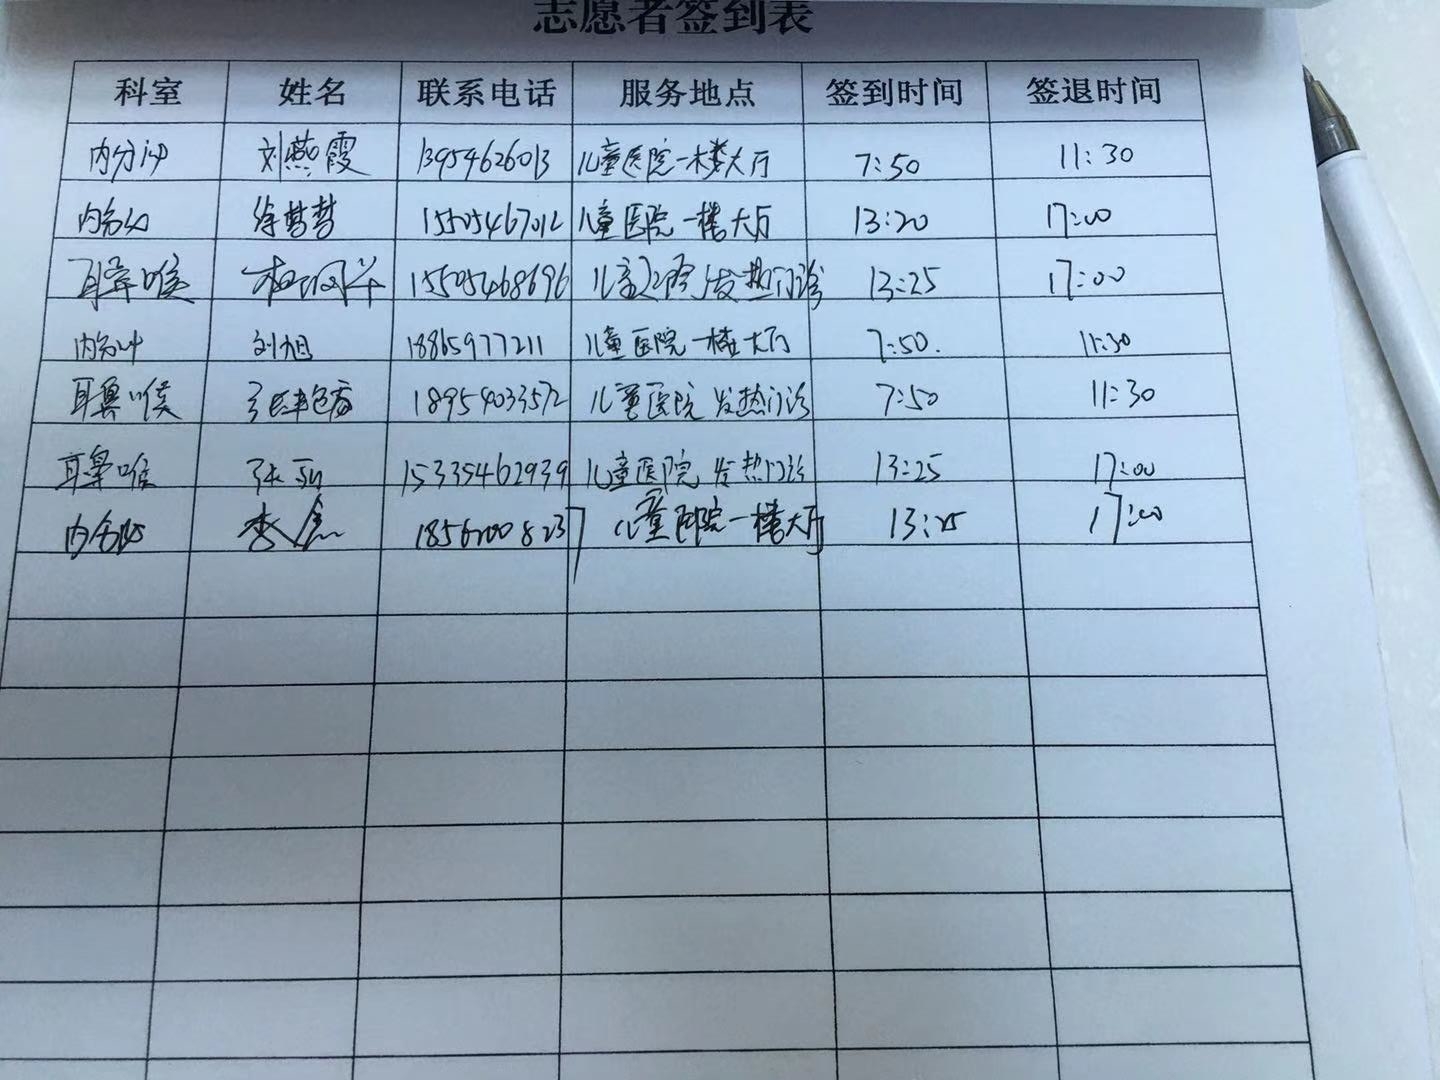 志愿者签到表
科室 姓名 联系电话 服务地点 签到时间 签退时间
内分泌 刘燕霞 13954626013 儿童医院一楼大厅 7:50 11:30
内分泌 徐梦梦 15505467012 儿童医院一楼大厅 13:20 17:00
耳鼻喉 15505468696 发热门诊 13:25 17:00
内分泌 刘旭 18865977211 儿童医院一楼大厅 7:50. 11:30
耳鼻喉 18954033572 儿童医院 发热门诊 7:50 11:30
耳鼻喉 张 15335462939 儿童医院 发热门诊 13:25 17:00
内分泌 李 儿童医院一楼大厅 13:25 17:00